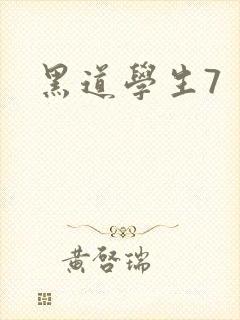 黑道學生7
黄啓瑞